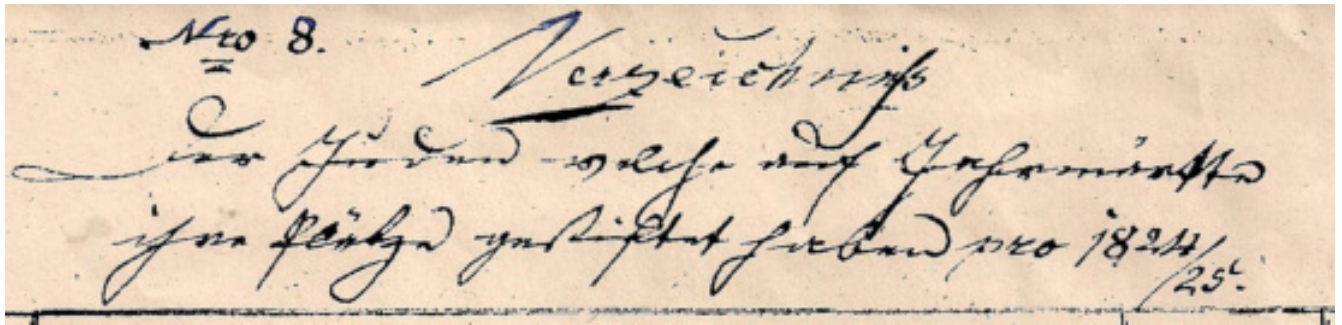 Nro 8.
Verzeichniß
Der Juden welche auf Jahrmärkte
ihre Plätze gestiftet haben pro 1824/25.